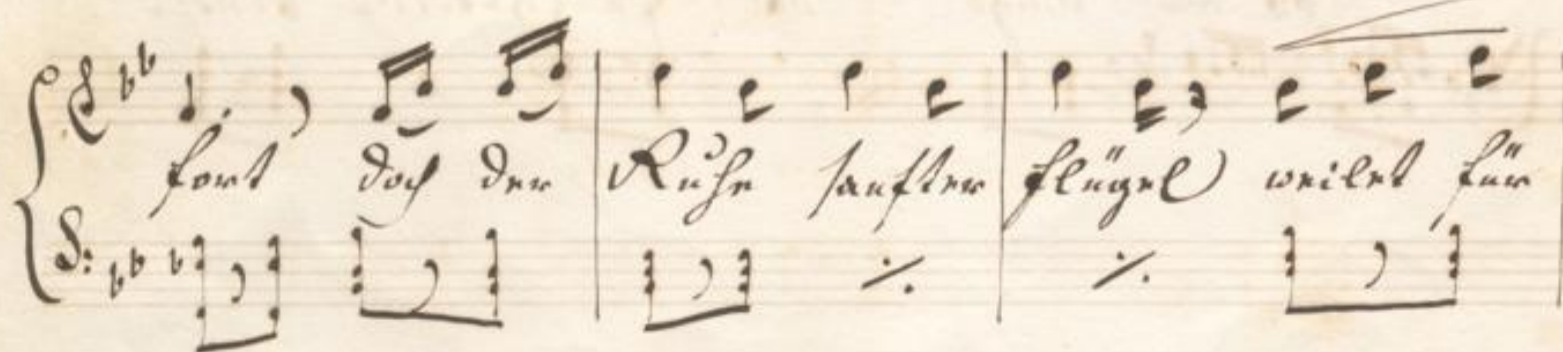 fort doch der Ruhe sanfter Flügel weilet für